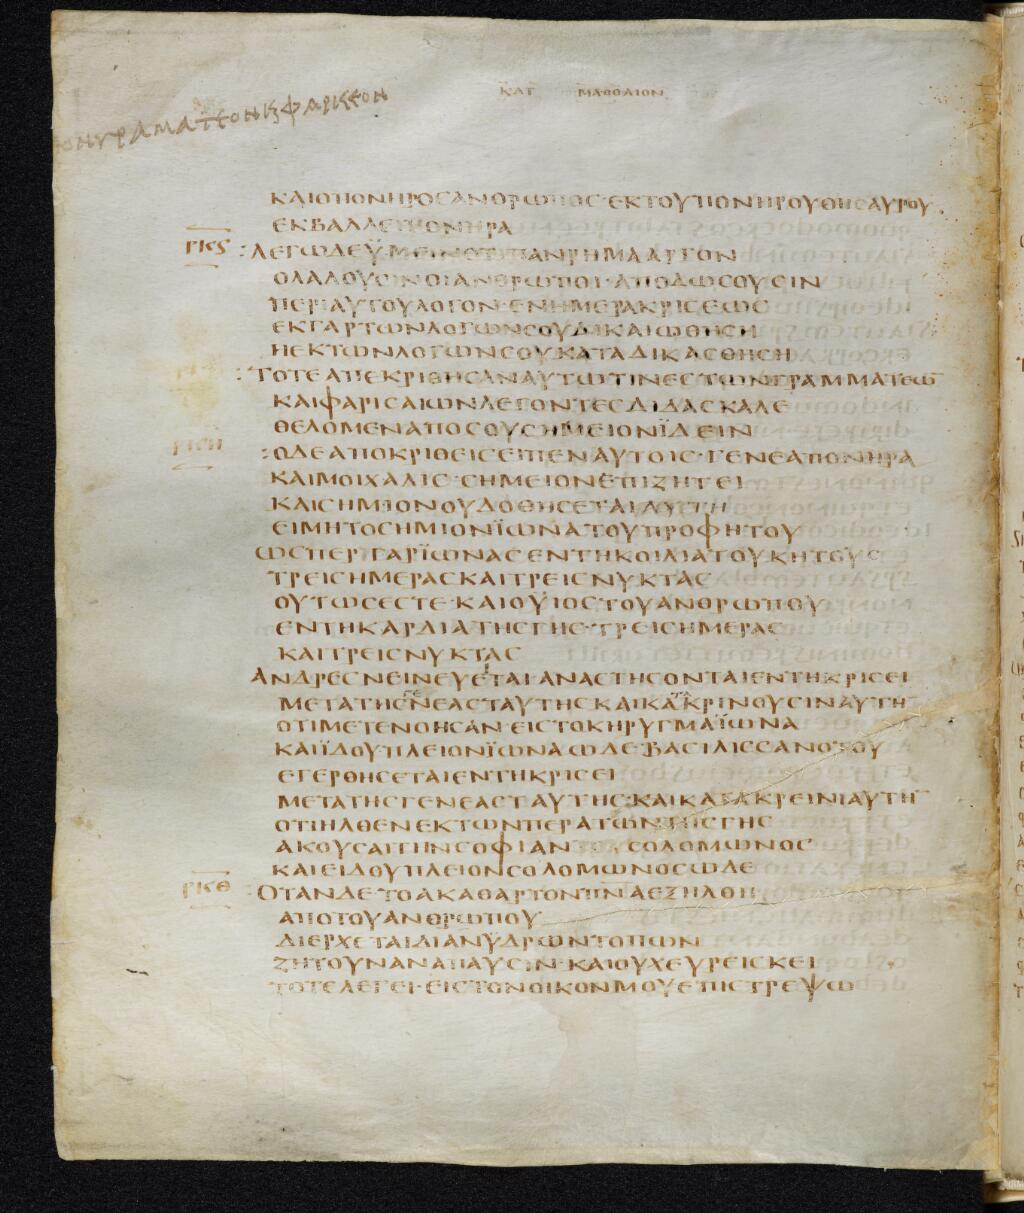 ΚΑΤ ΜΑΘΘΑΙΟΝ
ΟΝΓΡΑΜΑΤΕΟΝΚϚΦΑΡΙΚΕΟΝ
ΚΑΙΟΠΟΝΗΡΟΣΑΝΘΡΩΠΟΣ·ΕΚΤΟΥΠΟΝΗΡΟΥΘΗΣΑΥΡΟΥ
ΕΚΒΑΛΛΕΙΠΟΝΗΡΑ
ΡΚϚ :ΛΕΓΩΔΕΫΜΕΙΝΟΤΙΠΑΝΡΗΜΑΑΡΓΟΝ
ΟΛΑΛΟΥΣΙΝΟΙΑΝΘΡΩΠΟΙ·ΑΠΟΔΩΣΟΥΣΙΝ
ΠΕΡΙΑΥΤΟΥΛΟΓΟΝ·ΕΝΗΜΕΡΑΚΡΙΣΕΩΣ
ΕΚΓΑΡΤΩΝΛΟΓΩΝΣΟΥΔΙΚΑΙΩΘΗΣΗ
ΗΕΚΤΩΝΛΟΓΩΝΣΟΥΚΑΤΑΔΙΚΑΣΘΗΣΗ
:ΤΟΤΕΑΠΕΚΡΙΘΗΣΑΝΑΥΤΩΤΙΝΕΣΤΩΝΓΡΑΜΜΑΤΕΩ̅
ΚΑΙΦΑΡΙΣΑΙΩΝΛΕΓΟΝΤΕΣΔΙΔΑΣΚΑΛΕ
ΘΕΛΟΜΕΝΑΠΟΣΟΥΣΗΜΕΙΟΝΪΔΕΙΝ
ΡΚΗ :ΟΔΕΑΠΟΚΡΙΘΕΙΣΕΙΠΕΝΑΥΤΟΙΣ·ΓΕΝΕΑΠΟΝΗΡΑ
ΚΑΙΜΟΙΧΑΛΙΣ·ΣΗΜΕΙΟΝΕΠΙΖΗΤΕΙ
ΚΑΙΣΗΜΙΟΝΟΥΔΟΘΗΣΕΤΑΙΑΥΤΗ
ΕΙΜΗΤΟΣΗΜΙΟΝΪΩΝΑΤΟΥΠΡΟΦΗΤΟΥ
ΩΣΠΕΡΓΑΡΪΩΝΑΣΕΝΤΗΚΟΙΛΙΑΤΟΥΚΗΤΟΥΣ
ΤΡΕΙΣΗΜΕΡΑΣΚΑΙΤΡΕΙΣΝΥΚΤΑΣ
ΟΥΤΩΣΕΣΤΕ·ΚΑΙΟΫΙΟΣΤΟΥΑΝΘΡΩΠΟΥ
ΕΝΤΗΚΑΡΔΙΑΤΗΣΓΗΣ·ΤΡΕΙΣΗΜΕΡΑΣ
ΚΑΙΤΡΕΙΣΝΥΚΤΑΣ
ΑΝΔΡΕΣΝΕΙΝΕΥΕΤΑΙΑΝΑΣΤΗΣΟΝΤΑΙΕΝΤΗΚΡΙΣΕΙ
ΜΕΤΑΤΗΣΓΕΝΕΑΣΤΑΥΤΗΣΚΑΙΚΑΤΑΚΡΙΝΟΥΣΙΝΑΥΤΗ̅
ΟΤΙΜΕΤΕΝΟΗΣΑΝ·ΕΙΣΤΟΚΗΡΥΓΜΑΪΩΝΑ
ΚΑΙΪΔΟΥΠΛΕΙΟΝΪΩΝΑΩΔΕ·ΒΑΣΙΛΙΣΣΑΝΟΤΟΥ
ΕΓΕΡΘΗΣΕΤΑΙΕΝΤΗΚΡΙΣΕΙ
ΜΕΤΑΤΗΣΓΕΝΕΑΣΤΑΥΤΗΣ·ΚΑΙΚΑΤΑΚΡΕΙΝΙΑΥΤΗ̅
ΟΤΙΗΛΘΕΝΕΚΤΩΝΠΕΡΑΤΩΝΤΗΣΓΗΣ
ΑΚΟΥΣΑΙΤΗΝΣΟΦΙΑΝΤΟΥΣΟΛΟΜΩΝΟΣ
ΚΑΙΕΙΔΟΥΠΛΕΙΟΝΣΟΛΟΜΩΝΟΣΩΔΕ
ΡΚΘ :ΟΤΑΝΔΕΤΟΑΚΑΘΑΡΤΟΝΠ̅Ν̅Α̅ΕΞΗΛΘΗ
ΑΠΟΤΟΥΑΝΘΡΩΠΟΥ
ΔΙΕΡΧΕΤΑΙΔΙΑΝΫΔΡΩΝΤΟΠΩΝ
ΖΗΤΟΥΝΑΝΑΠΑΥΣΙΝ·ΚΑΙΟΥΧΕΥΡΕΙΣΚΕΙ
ΤΟΤΕΛΕΓΕΙ·ΕΙΣΤΟΝΟΙΚΟΝΜΟΥΕΠΙΣΤΡΕΨΩ